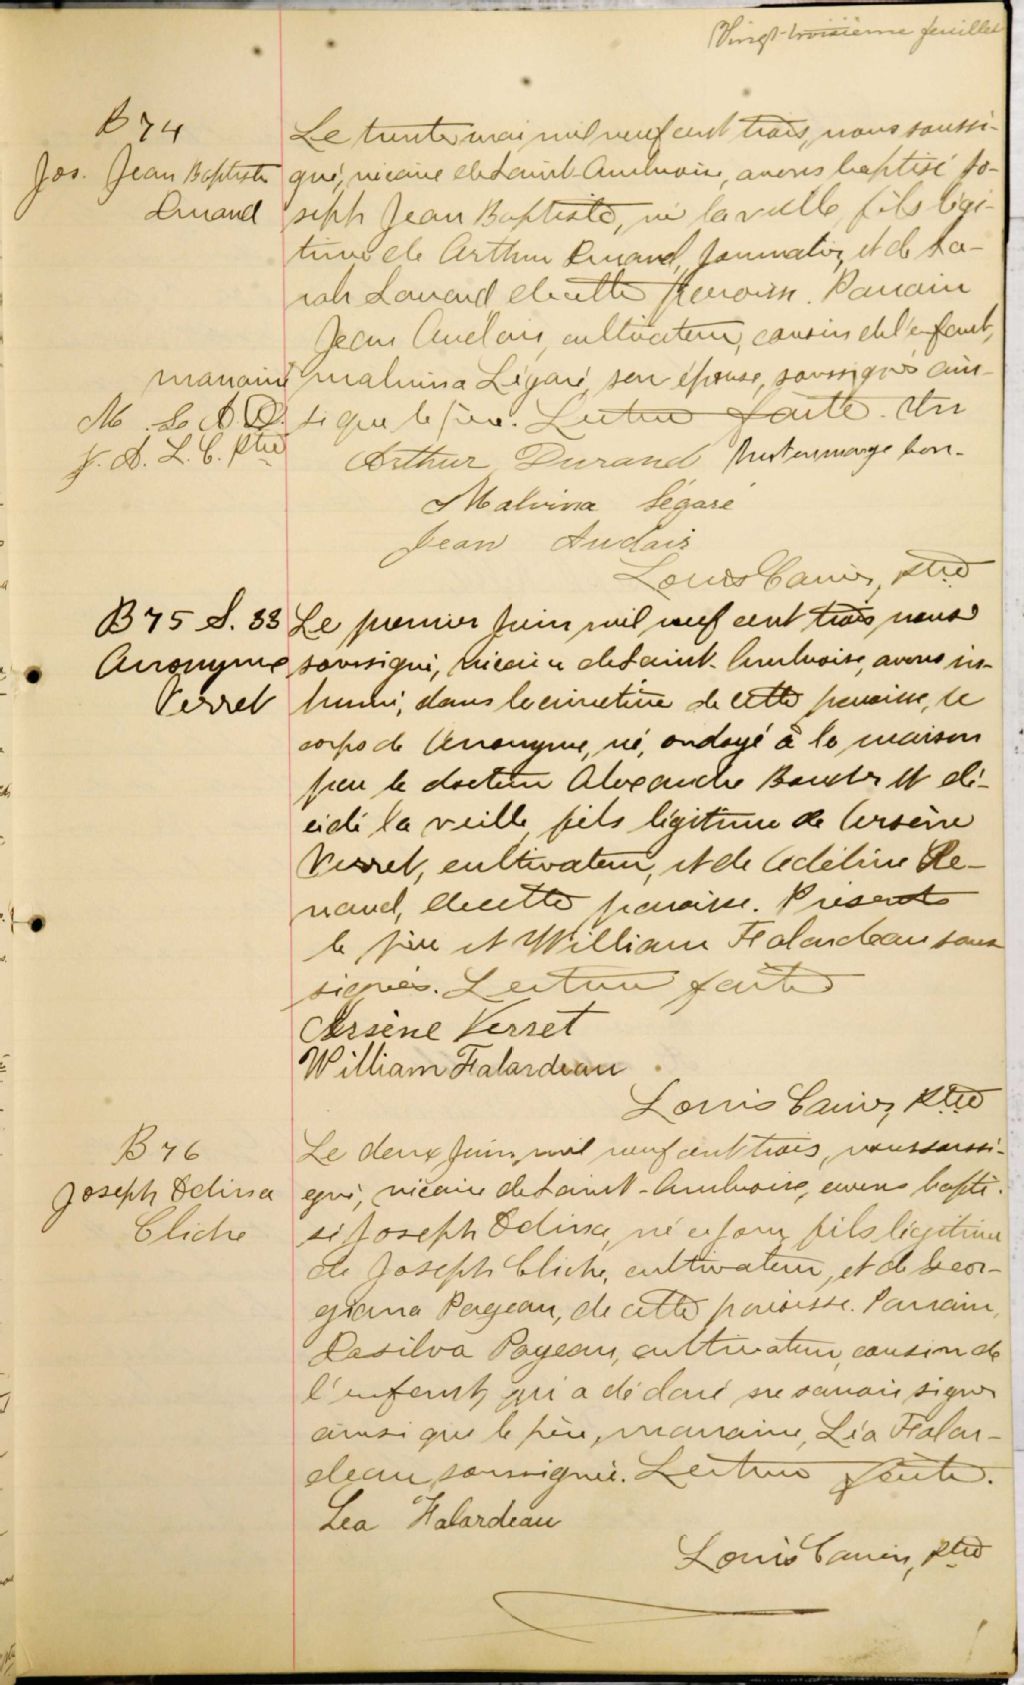 Vingt-troisième feuillet
B 74
Jos. Jean Baptiste
Durand
Le trente mai mil neuf cent trois, nous soussi-
gné, vicaire de Saint-Ambroise, avons baptisé Jo-
seph Jean Baptiste, né la veille, fils légi-
time de Arthur Durand, journalier, et de Sa-
rah Savard de cette paroisse. Parrain
Jean Audais, cultivateur, cousin de l'enfant,
marraine Malvina Légaré, son épouse, soussignés ain-
si que le père. Lecture faite. Un
M. L. A. D.
J. A. L. C. Ptre
Arthur Durand mot en marge bon.
Malvina Légaré
Jean Audais
Louis Cannon, ptre
B 75 S. 33
Anonyme
Verret
Le premier Juin mil neuf cent trois nous
soussigné, vicaire de Saint-Ambroise, avons in-
humé, dans le cimetière de cette paroisse, le
corps de Anonyme, né, ondoyé à la maison
par le docteur Alexandre et dé-
cédé la veille, fils légitime de Arsène
Verret, cultivateur, et de Adéline Re-
naud, de cette paroisse. Présents
le père et William Falardeau sous
signés. Lecture faite
Arsène Verret
William Falardeau
Louis ptre
B 76
Joseph Odina
Cliche
Le deux Juin, mil neuf cent trois, nous soussi-
gné, vicaire de Saint-Ambroise, avons bapti-
sé Joseph Odina, né ce jour, fils légitime
de Joseph Cliche, cultivateur, et de Geor-
giana Pageau, de cette paroisse. Parrain,
Dasilva Pageau, cultivateur, cousin de
l'enfant, qui a déclaré ne savoir signer
ainsi que le père, marraine, Léa Falar-
deau, soussignée. Lecture faite.
Lea Falardeau
Louis ptre